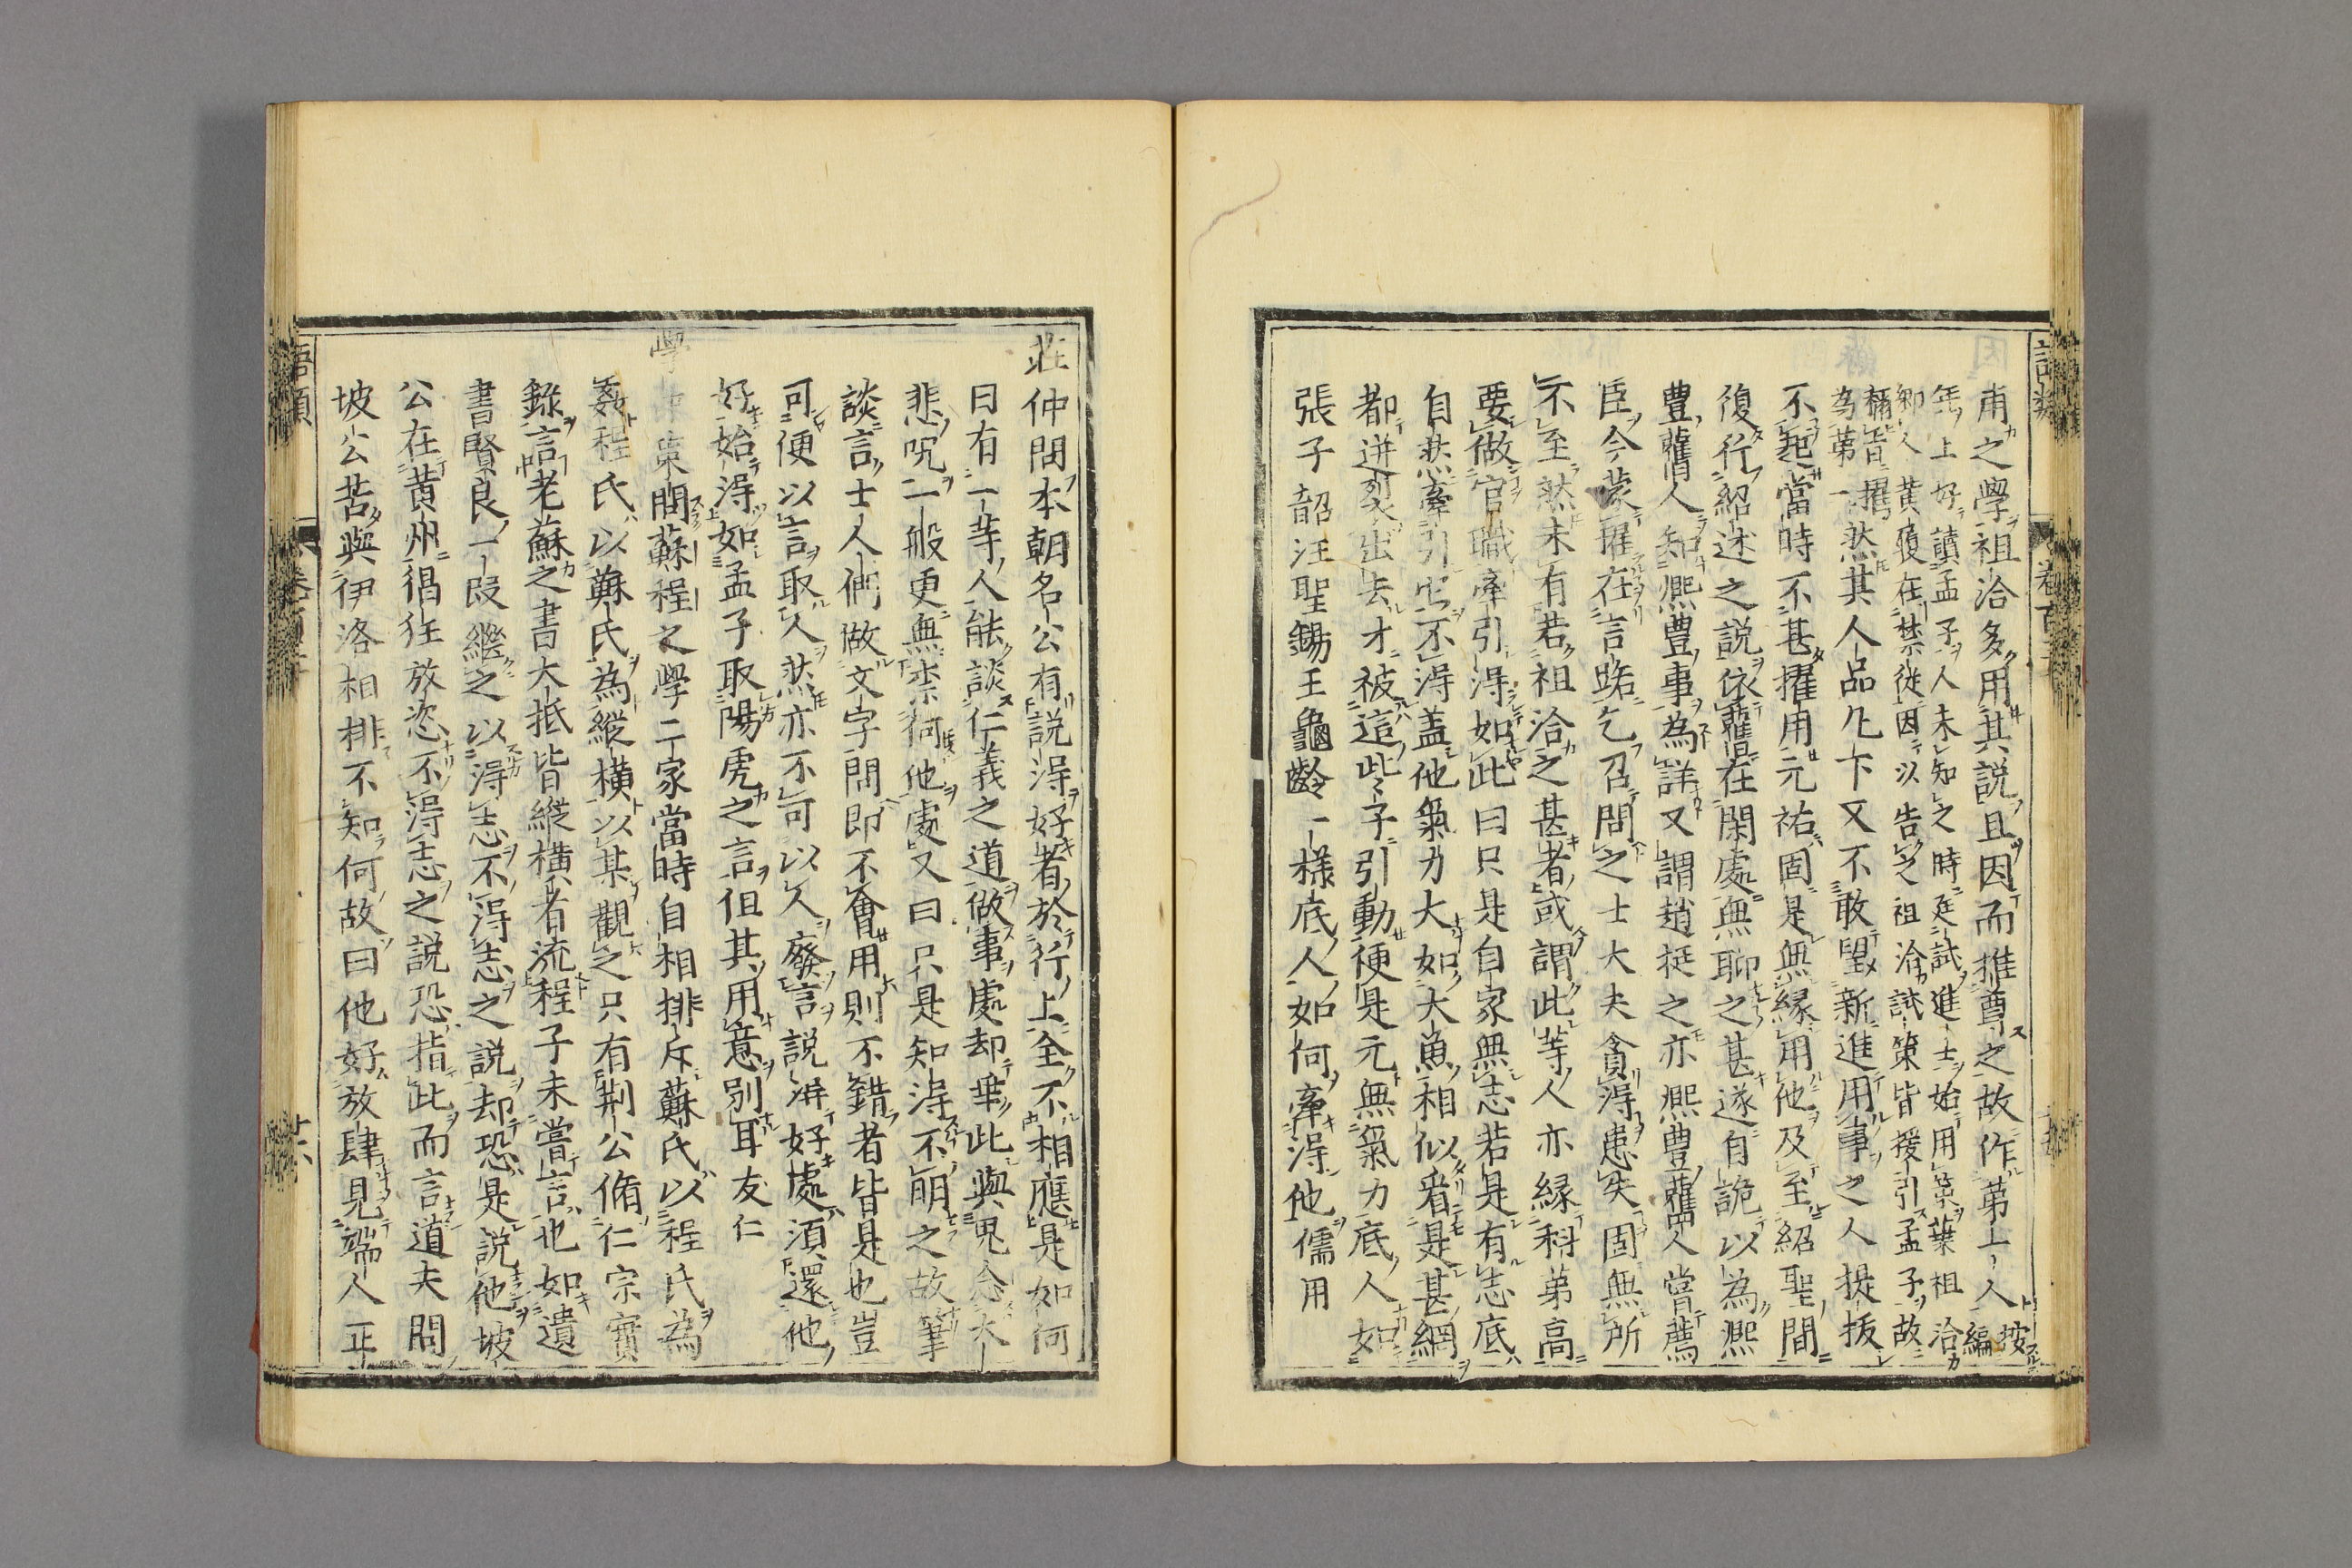 甫之學祖洽多用其說且因而推尊之故作第一人按編
年上好讀孟子人未知之時廷試進士始用策葉祖洽
鄉人黃履在禁從因以告之祖洽試策皆援引孟子故
稱旨擢
為第一然其人品凡下又不敢望新進用事之人提拔
不起當時不甚擢用元祐固是無緣用他及至紹聖間
復行紹述之說依舊在閑處無聊之甚遂自詭以為熙
豐舊人知熙豐事為詳又謂趙挺之亦熙豐舊人嘗薦
臣今蒙擢在言路乞召問之士大夫貪得患失固無所
不至然未有若祖洽之甚者或謂此等人亦緣科第高
要做官職牽引得如此曰只是自家無志若是有志底
自然牽引它不得蓋他氣力大如大魚相似看是甚網
都迸裂出去才被這些子引動便是元無氣力底人如
張子韶汪聖錫王龜齡一樣底人如何牽得他儒用
莊仲問本朝名公有說得好者於行上全不相應是如何
曰有一等人能談仁義之道做事處却乖此與鬼念大
悲呪一般更無柰何他處又曰只是知得不明之故筆
談言士人們做文字問即不會用則不錯者皆是也豈
可便以言取人然亦不可以人廢言說得好處須還他
好始得如孟子取陽虎之言但其用意別耳友仁
問蘇程之學二家當時自相排斥蘇氏以程氏為
姦程氏以蘇氏為縱橫以某觀之只有荊公脩仁宗實
錄言老蘇之書大抵皆縱橫者流程子未嘗言也如遺
書賢良一段繼之以得志不得志之說却恐是說他坡
公在黃州猖狂放恣不得志之說恐指此而言道夫問
坡公苦與伊洛相排不知何故曰他好放肆見端人正